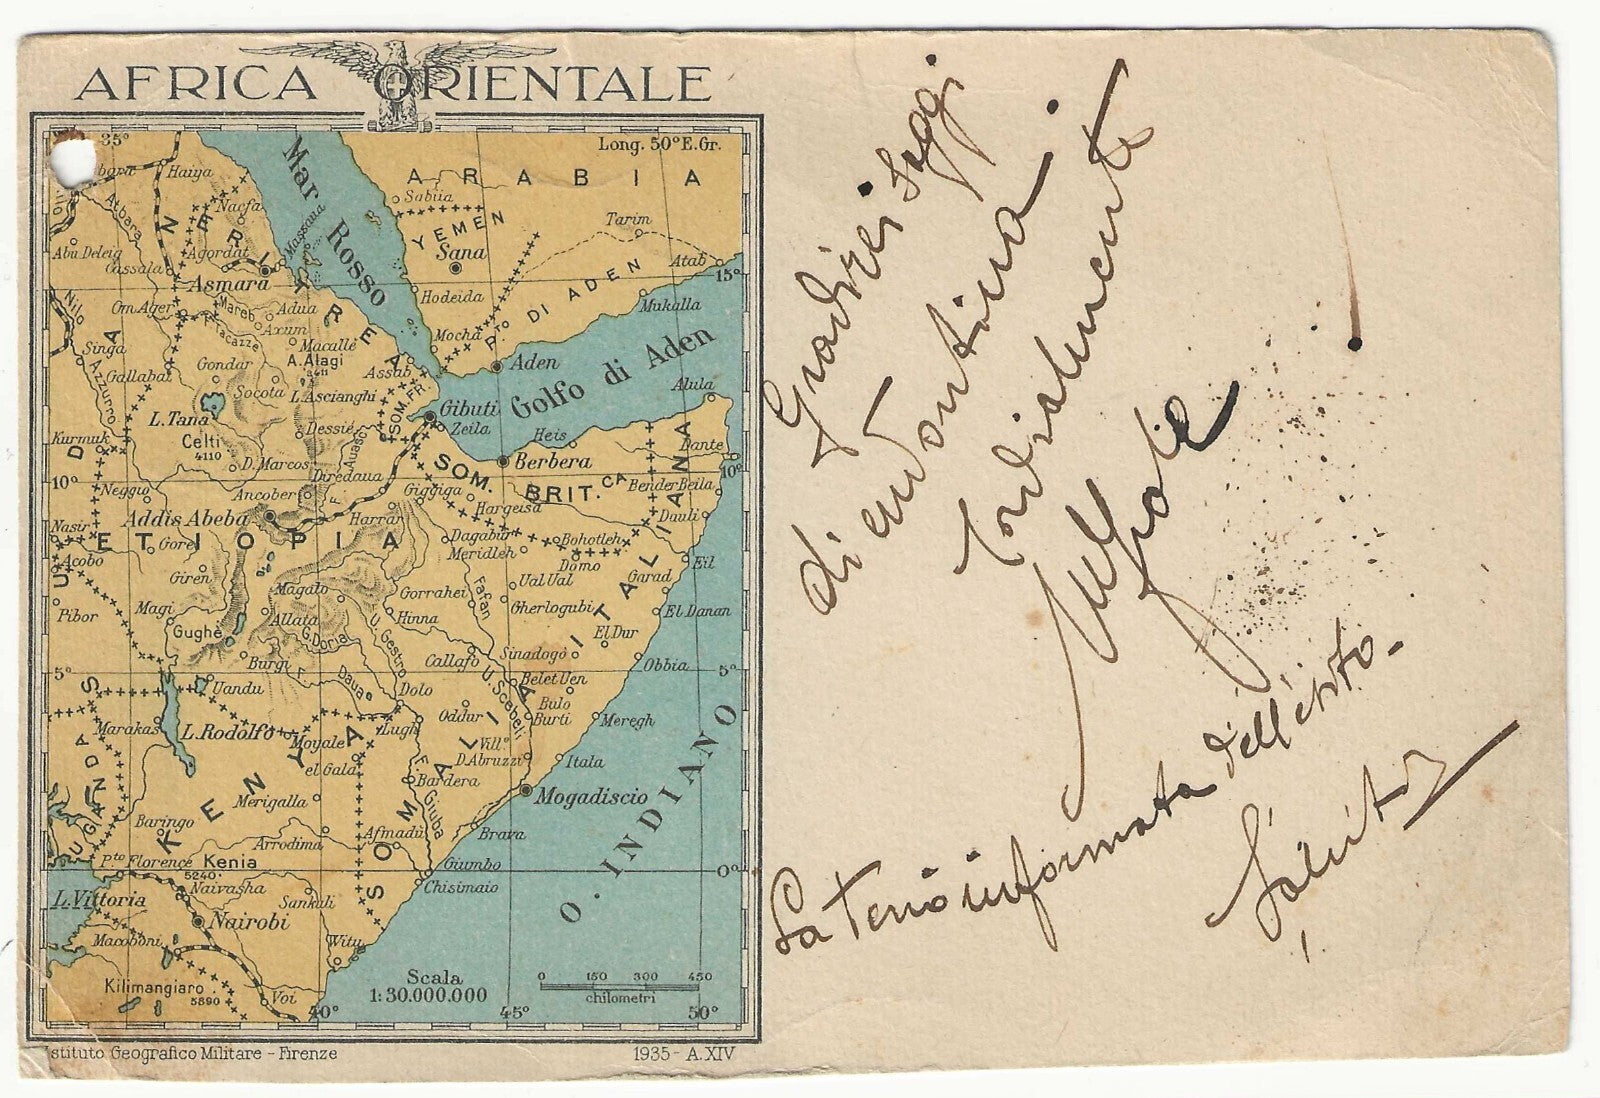 AFRICA ORIENTALE
35°
Long. 50° E.Gr.
Haiya
ARABIA
Mar Rosso
Sabiia
Atbara
Nacfa
YEMEN
Tarim
Massaua
Abu Deleig
Agordat
Sana
Cassala
Atab
15°
Asmara
ERITREA
Hodeida
P.to DI ADEN
Mukalla
Nilo
Om Ager
Mareb
Adua
Axum
Tacazze
Mocha
Singa
Macallè
A. Alagi
Gondar
Assab
Aden
Golfo di Aden
Gallabat
Azzurro
Socota
L. Ascianghi
SOM. FR.
Alula
L. Tana
Gibuti
Zeila
Kurmuk
Celti
4110
Dessiè
Heis
Dante
D. Marcos
Auasc
Berbera
10°
10°
Diredaua
SOM. BRIT.CA
Neggio
Ancober
Giggiga
Bender Beila
Addis Abeba
Harrar
Hargeisa
Dauli
Nasir
Dagabur
Bohotleh
ETIOPIA
Gore
Meridleh
Acobo
Domo
Eil
Giren
Ual Ual
Garad
Magalo
Gorrahei
Fafan
Pibor
Magi
Gherlogubi
El Danan
Allata
Hinna
Gughè
G. Doria
U. Gestro
El Dur
Burgi
Callafo
Sinadogò
Obbia
5°
5°
F. Daua
U. Scebeli
Belet Uen
Uandu
Dolo
Bulo Burti
Oddur
Meregh
Marakas
L. Rodolfo
Lugh
Moyale
Vill.o D. Abruzzi
el Gala
Itala
UGANDA
KENYA
F. Giuba
Bardera
SOMALIA ITALIANA
Mogadiscio
O. INDIANO
Merigalla
Baringo
Afmadù
Brava
Arrodima
P.to Florence
Kenia
5240
Giumbo
0°
Naivasha
Chisimaio
L. Vittoria
Sankuli
Nairobi
Macoboni
Witu
Kilimangiaro
5890
Voi
Scala
1:30.000.000
0 150 300 450
chilometri
40°
45°
50°
Istituto Geografico Militare - Firenze
1935 - A. XIV
Gradirei saggi
di
Cordialmente
La terrò informata dell'esito.
Saluti